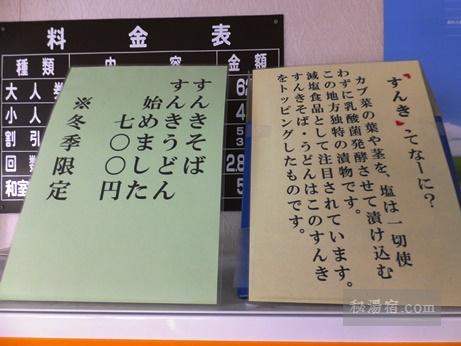 料金表
種類 内容 金額
大人
小人
割引
回数
和室
すんきそば
すんきうどん
始めました
七〇〇円
※冬季限定
"すんき"てなーに？
カブ菜の葉や茎を、塩は一切使
わずに乳酸菌発酵させて漬け込む
この地方独特の漬物です。
減塩食品として注目されています。
すんきそば・うどんはこのすんき
をトッピングしたものです。
秘湯宿.com